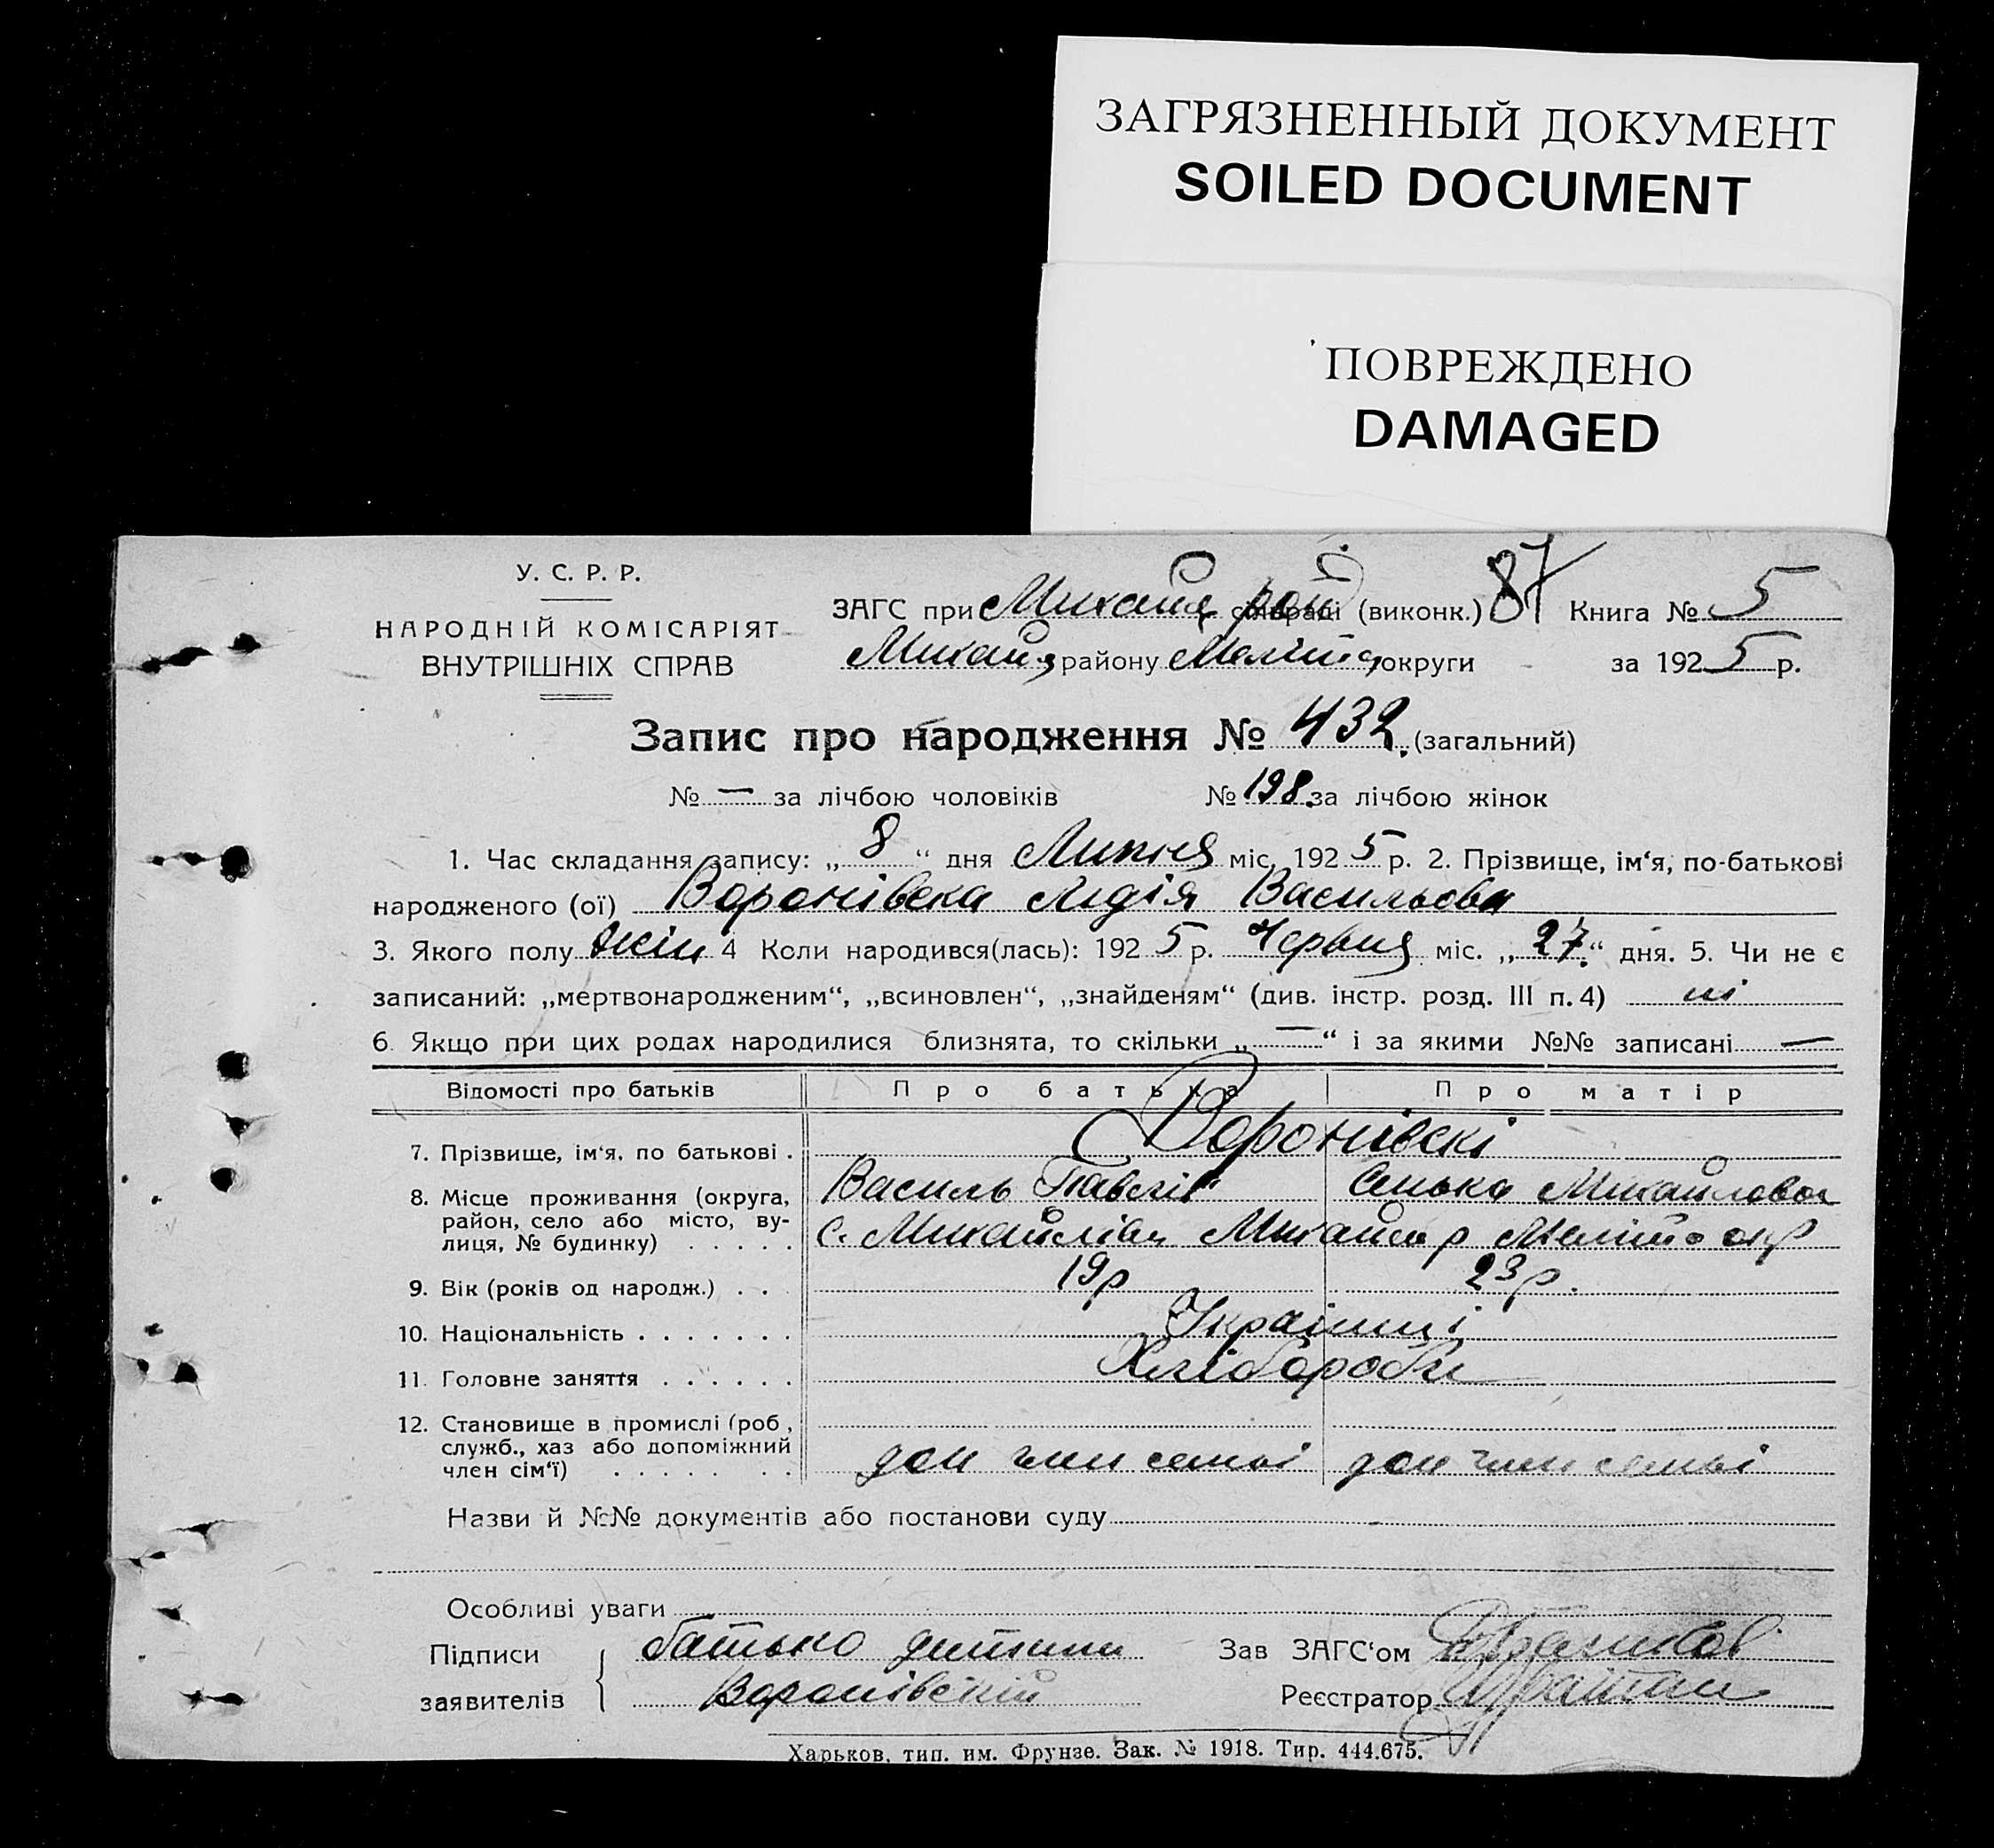 ЗАГРЯЗНЕННЫЙ ДОКУМЕНТ
SOILED DOCUMENT
ПОВРЕЖДЕНО
DAMAGED
У. С. Р. Р.
НАРОДНІЙ КОМІСАРІЯТ
ВНУТРІШНІХ СПРАВ
ЗАГС при Михайл рай сільраді (виконк.) 87 Книга № 5
Михайл району Меліт округи за 1925 р.
Запис про народження № 432. (загальний)
№ — за лічбою чоловіків № 198. за лічбою жінок
1. Час складання запису: „ 8 “ дня Липня міс. 1925 р. 2. Прізвище, ім‘я, по-батькові
народженого (ої) Воронівска Лідія Васильова
3. Якого полу жін 4 Коли народився(лась): 1925 р. Червня міс. „ 27. “ дня. 5. Чи не є
записаний: „мертвонародженим“, „всиновлен“, „знайденям“ (див. інстр. розд. III п. 4) ні
6. Якщо при цих родах народилися близнята, то скільки „ — “ і за якими №№ записані —
Відомості про батьків Про батька Про матір
7. Прізвище, ім‘я, по батькові . Воронівскі
Василь Павлів Михайлова
8. Місце проживання (округа,
район, село або місто, ву-
лиця, № будинку) . . . . . с. Михайлівка Михайл р Меліто окр
9. Вік (років од народж.) . . 19р 23р.
10. Національність . . . . . . . Українці
11. Головне заняття . . . . . . Хлібороби
12. Становище в промислі (роб.,
служб., хаз або допоміжний
член сім‘ї) . . . . . . . доп член семьі доп член семьі
Назви й №№ документів або постанови суду
Особливі уваги
Підписи батько дитини Зав ЗАГС‘ом
заявителів Воронівский Реєстратор
Харьков, тип. им. Фрунзе. Зак. № 1918. Тир. 444.675.